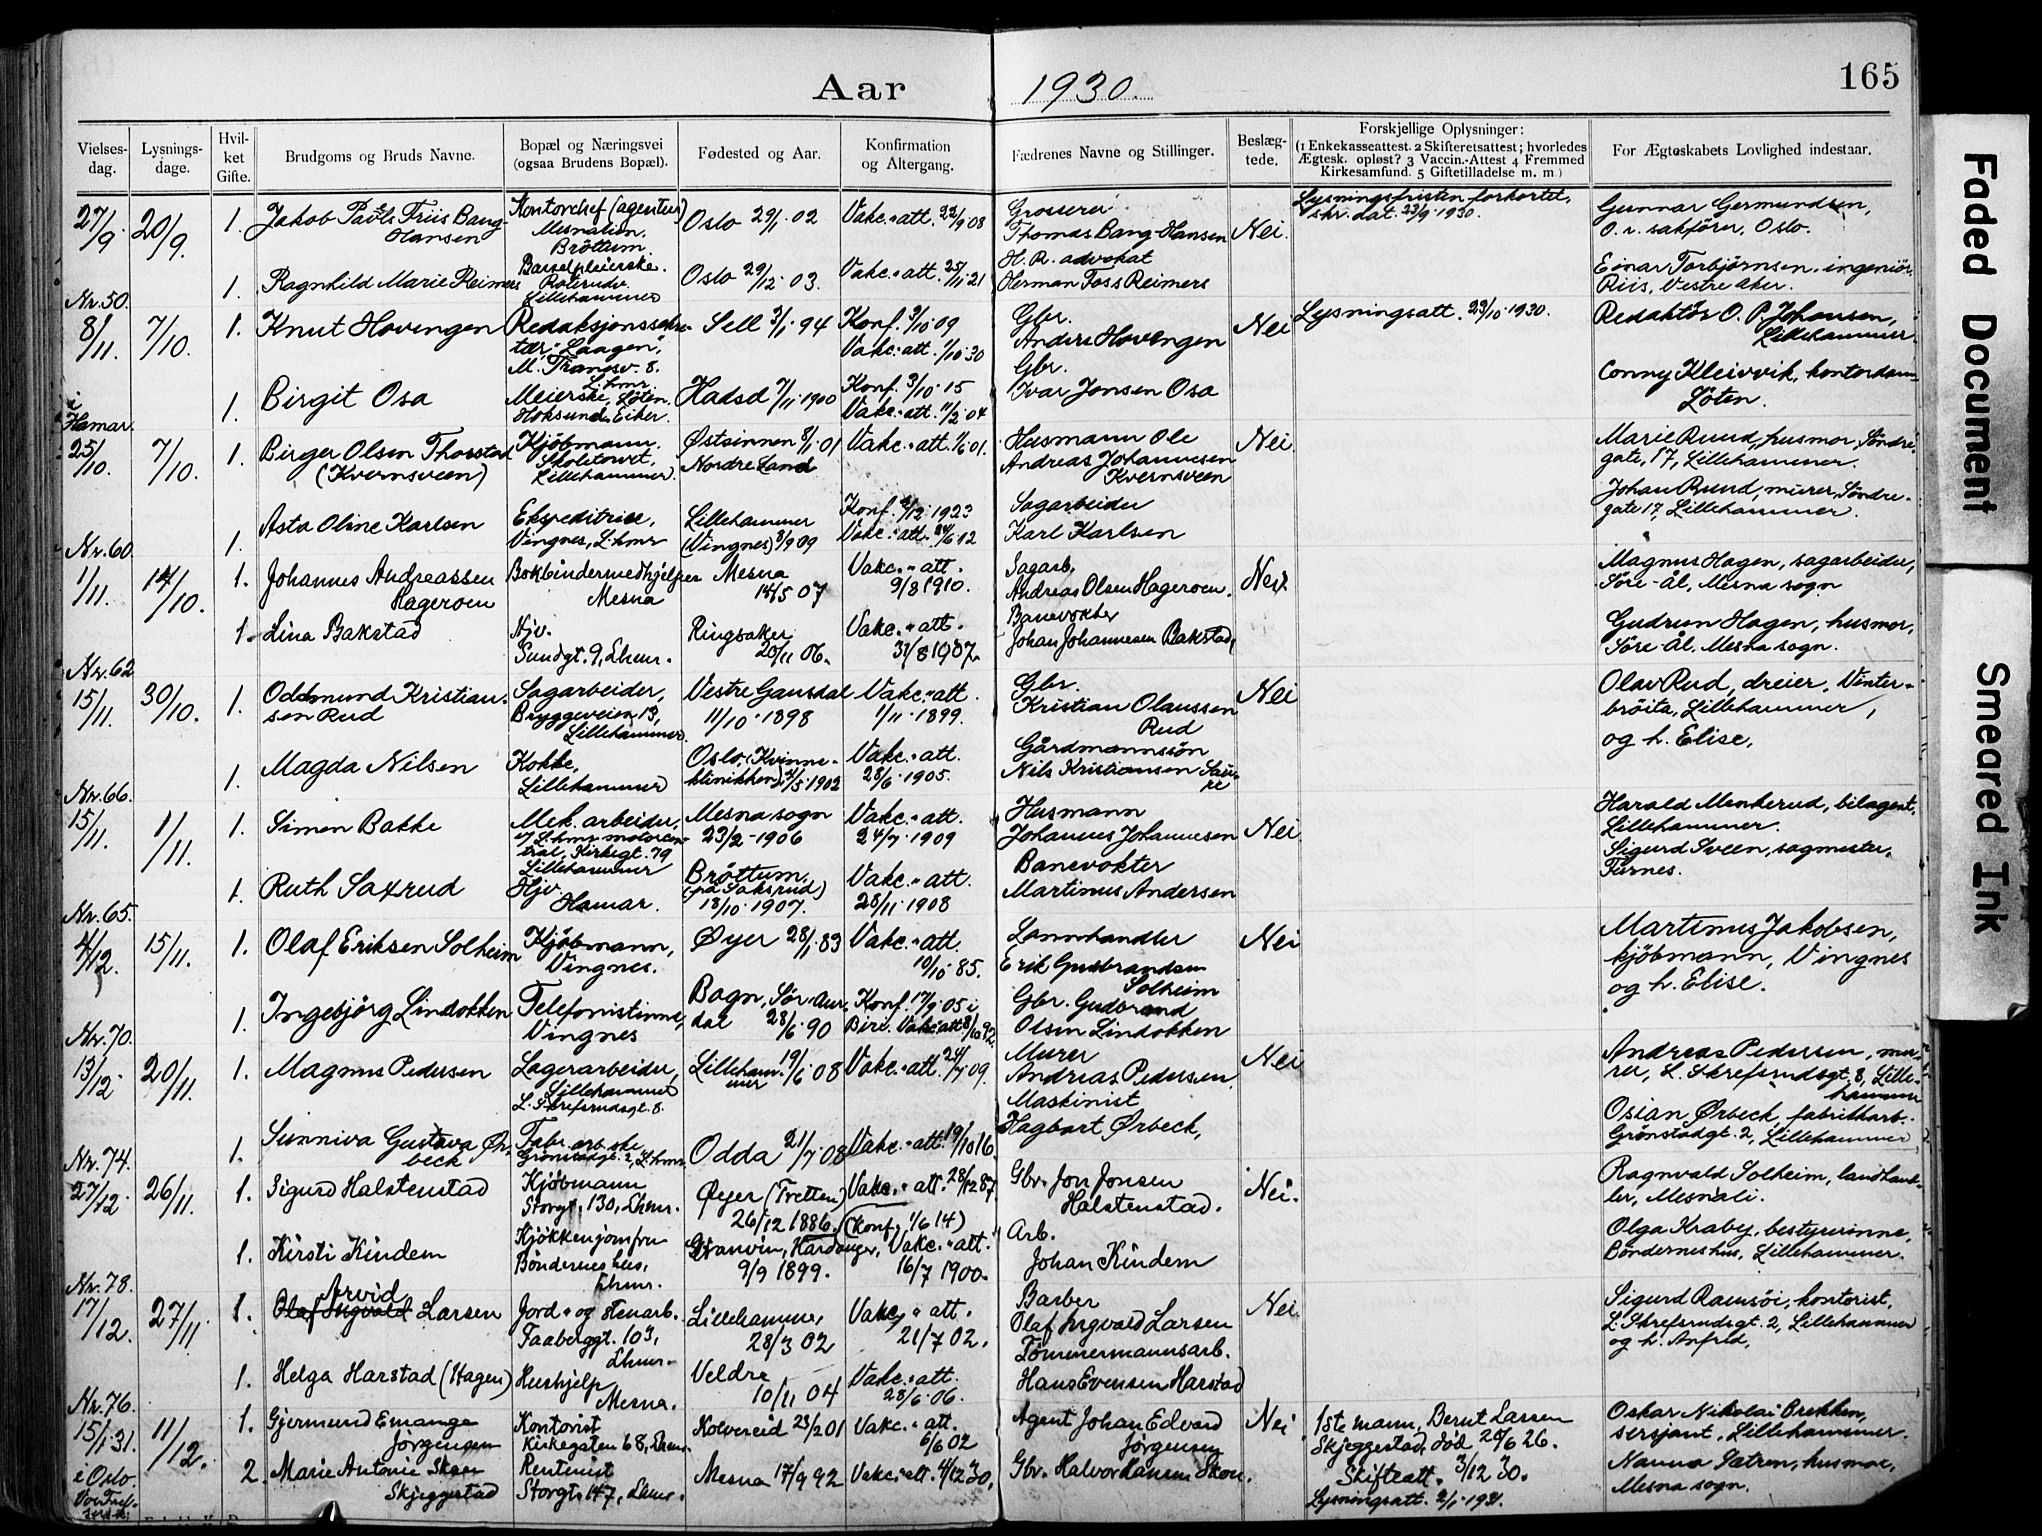 Aar 1930.
165
Vielses-dag.
Lysnings-dage.
Hvil-ket Gifte.
Brudgoms og Bruds Navne.
Bopæl og Næringsvei
(ogsaa Brudens Bopæl).
Fødested og Aar.
Konfirmation
og Altergang.
Fædrenes Navne og Stillinger.
Beslæg-tede.
Forskjellige Oplysninger:
(1 Enkekasseattest. 2 Skifteretsattest; hvorledes
Ægtesk. opløst? 3 Vaccin.-Attest 4 Fremmed
Kirkesamfund. 5 Giftetilladelse m. m)
For Ægteskabets Lovlighed indestaar.
27/9 20/9. 1. Jakob Friis Bang-
Hansen
Kontorchef (agentur)
Mesnalien.
Brøttum
Oslo 29/1 02
Vakc.-att. 22/9 08
Grosserer
Thomas Bang-Hansen
Nei.
Lysningsfristen forkortet,
skr. dat. 23/9 1930.
Gunnar Germundsen,
O.r. sakfører, Oslo.
1. Ragnhild Marie Reimers
Barselpleierske.
Lillehammer
Oslo 29/12 03.
Vakc.-att. 25/11 21
H.R. advokat
Herman Foss Reimers
Einar Torbjørnsen, ingeniør
Riis, Vestre Aker.
Nr. 50.
8/11. 7/10. 1. Knut Hovengen
Redaksjonssekre-
tær "Laagen",
M. Thransv. 8.
L.hmr.
Sell 3/1 94
Konf. 3/10 09
Vakc.-att. 1/10 30
Gbr.
Anders Hovengen
Nei
Lysningsatt. 23/10 1930.
Redaktør O. P. Johansen,
Lillehammer
i Hamar.
1. Birgit Osa
Meierske, Løten.
Hoksund, Eiker.
7/11 1900
Konf. 3/10 15
Vakc.-att. 11/2 04
Gbr.
Ivar Jonsen Osa
Conny Kleivvik, kontordame
Løten.
25/10. 7/10. 1. Birger Olsen Thorstad
(Kvernsveen)
Kjøbmann.
Skoletorvet,
Lillehammer.
Østsinnen 8/1 01
Nordre Land
Vakc.-att. 1/6 01.
Husmann Ole
Andreas Johannesen
Kvernsveen
Nei
Marie Ruud, husmor, Søndre-
gate, 17, Lillehammer.
1. Asta Oline Karlsen
Ekspeditrise,
Vingnes, L.hmr
Lillehammer
(Vingnes) 8/9 09
Konf. 2/12 1923
Vakc.-att. 24/6 12
Sagarbeider
Karl Karlsen
Johan Ruud, murer, Søndre-
gate 17, Lillehammer.
Nr. 60.
1/11. 14/10. 1. Johannes Andreassen
Hageroen
Bokbindermedhjelper
Mesna
Mesna
14/5 07
Vakc.-att.
9/8 1910.
Sagarb.
Andreas Olsen Hageroen.
Nei
Magnus Hagen, sagarbeider,
Søre-ål, Mesna sogn
1. Lina Bakstad
Hjv.
Sundgt. 9, Lhmr.
Ringsaker
20/11 06.
Vakc.-att.
31/8 1907.
Banevokter
Johan Johannesen Bakstad,
Gudrun Hagen, husmor,
Søre-ål, Mesna sogn.
Nr. 62
15/11. 30/10. 1. Oddmund Kristian-
sen Rud
Sagarbeider,
Bryggeveien 13,
Lillehammer.
Vestre Gausdal
11/10 1898
Vakc.-att
1/11 1899.
Gbr.
Kristian Olaussen
Rud
Nei
Olav Rud, dreier, Vinter-
brøita, Lillehammer,
og h. Elise,
1. Magda Nilsen
Kokke,
Lillehammer
Oslo, (Kvinne-
klinikken) 4/5 1902
Vakc.-att.
28/6 1905.
Gårdmannssøn
Nils Kristiansen
Nr. 66.
15/11. 1/11. 1. Simen Bakke
Mek. arbeider,
v/ L.hmr motorcen-
tral, Kirkegt. 79
Lillehammer
Mesna sogn
23/2 1906
Vakc.-att.
24/7 1909
Husmann
Johannes Johannesen
Nei
Harald Menkerud, bilagent,
Lillehammer.
1. Ruth Saxrud
Hjv.
Hamar.
Brøttum,
(på Saksrud)
18/10 1907.
Vakc.-att.
28/11 1908
Banevokter
Martinus Andersen
Sigurd Sveen, sagmester,
Furnes.
Nr. 65.
4/12. 15/11. 1. Olaf Eriksen Solheim
Kjøbmann,
Vingnes.
Øyer 28/1 83
Vakc.-att.
10/10 85.
Lannhandler
Erik Gudbrandsen
Solheim
Nei
Martinus Jakobsen,
kjøbmann, Vingnes
og h. Elise.
1. Ingebjørg Lindokken
Telefonistinne,
Vingnes
Bagn, Sør-Aur-
dal 28/6 90
Konf. 17/9 05 i
Biri. Vakc.att. 8/10 92.
Gbr. Gudbrand
Olsen Lindokken
Nr. 70.
13/12. 20/11. 1. Magnus Pedersen
Lagerarbeider,
Lillehammer
L. Skrefsrudsgt. 8.
Lilleham-
mer 19/6 08
Vakc.-att. 24/7 09.
Murer
Andreas Pedersen.
Nei
Andreas Pedersen, mu-
rer, L. Skrefsrudsgt. 8, Lille-
hammer
1. Sunniva Gustava Ør-
beck
Fabr. arb.ske
Grønstadgt. 2, L.hmr.
Odda 21/7 08
Vakc.-att. 19/10 16.
Maskinist
Hagbart Ørbeck,
Osian Ørbeck, fabrikkarb.
Grønstadgt. 2, Lillehammer
Nr. 74.
27/12. 26/11. 1. Sigurd Halstenstad
Kjøbmann
Storgt. 130, Lhmr.
Øyer (Tretten)
26/12 1886.
Vakc.-att. 28/12 87.
Gbr. Jon Jonsen
Halstenstad.
Nei.
Ragnvald Solheim, landhand-
ler, Mesnali.
1. Kirsti Kindem
Kjøkkenjomfru
Bøndernes hus,
Lhmr.
Granvin, Hardanger,
9/9 1899.
(Konf. 1/6 14)
Vakc.-att.
16/7 1900.
Arb.
Johan Kindem
Olga Kraby, bestyrerinne,
Bøndernes hus, Lillehammer.
Nr. 78.
17/12. 27/11. 1. Arvid
Olaf Ingvald Larsen
Jord- og stenarb.
Faaberggt. 103,
Lhmr.
Lillehammer,
28/3 02
Vakc.-att.
21/7 02.
Barber
Olaf Ingvald Larsen
Nei
Sigurd Ramsøi, kontorist,
L. Skrefsrudsgt. 2, Lillehammer
og h. Anfrid,
1. Helga Harstad (Hagen)
Hushjelp
Mesna.
Veldre
10/11 04
Vakc.-att.
28/6 06.
Tømmermannsarb.
Hans Evensen Harstad
Nr. 76.
15/1 31. 11/12. 1. Gjermund Emange
Jørgensen
Kontorist
Kirkegaten 68, Lhmr.
Kolvereid 23/2 01
Vakc.-att.
6/6 02
Agent Johan Edvard
Jørgensen
Nei
1ste mann, Bernt Larsen
Skjeggestad, død 20/6 26.
Skifteatt. 3/12 30.
Lysningsatt. 2/1 1931.
Oskar Nikolai Brekken,
sersjant, Lillehammer.
i Oslo
2. Marie Antonie
Skjeggestad
Rentenist
Storgt. 147, Lhmr.
Mesna 17/9 92
Vakc.att. 4/12 30.
Gbr. Halvor Hansen
Nanna Sætren, husmor,
Mesna sogn.
Faded Document
Smeared Ink